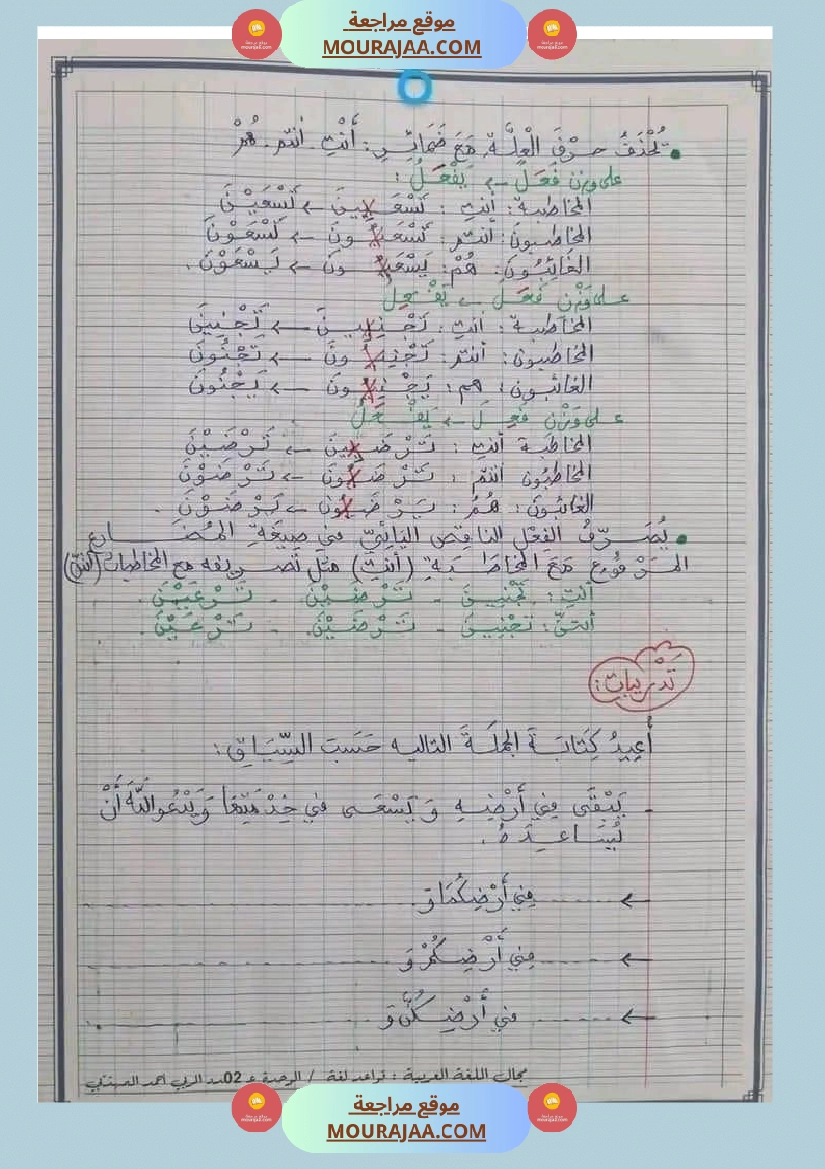 موقع مراجعة
MOURAJAA.COM
• يُحْذَفُ حَرْفُ الْعِلَّةِ مَعَ ضَمَائِرِ: أَنْتِ. أنتم. هُمْ
على وزن فَعَلَ ← يَفْعَلُ:
المخاطبة: أنتِ: تَسْعَيِينَ ← تَسْعَيْنَ
المخاطبون: أنتم: تَسْعَيُونَ ← تَسْعَوْنَ
الغَائِبُونَ: هُمْ: يَسْعَيُونَ ← يَسْعَوْنَ.
على وَزْنِ فَعَلَ ← يَفْعِلُ
المخاطبة: أنتِ: تَجْنِيِينَ ← تَجْنِينَ
المُخاطبون: أنتم: تَجْنِيُونَ ← تَجْنُونَ
الغائبون: هم: يَجْنِيُونَ ← يَجْنُونَ
على وَزْنِ فَعِلَ ← يَفْعَلُ
المخاطَبة أنتِ: تَرْضَيِينَ ← تَرْضَيْنَ
المخاطبُون أنتم: تَرْضَيُونَ ← تَرْضَوْنَ
الغائبونَ: هُمْ: يَرْضَيُونَ ← يَرْضَوْنَ.
• يُصَرَّفُ الفِعْلُ الناقص اليَائِيّ في صِيغَةِ المُضَارِع
المَرْفُوع مَعَ المخَاطَبَةِ (أنتِ) مثل تَصْريفه مع المخاطبات (أنتنّ)
أنتِ: تَجْنِينَ - تَرْضَيْنَ - تَرْعَيْنَ.
أنتنَّ: تَجْنِينَ - تَرْضَيْنَ. - تَرْعَيْنَ.
تَدْريبات:
أُعِيدُ كِتَابَةَ الجملَةَ التاليه حَسَبَ السِّيَاقِ:
- يَبْقَى فِي أَرْضِهِ وَيَسْعَى في خِدْمَتِهَا وَيَدْعُو اللَّهَ أَنْ
يُسَاعِدَهُ.
← ...... فِي أَرْضِكُمَا وَ ......................
← ...... فِي أَرْضِكُمْ وَ ......................
← ...... في أَرْضِكُنَّ وَ ......................
مجال اللغة العربية: قواعد لغة / الوحدة عـ02ـدد المربي أحمد
موقع مراجعة
MOURAJAA.COM